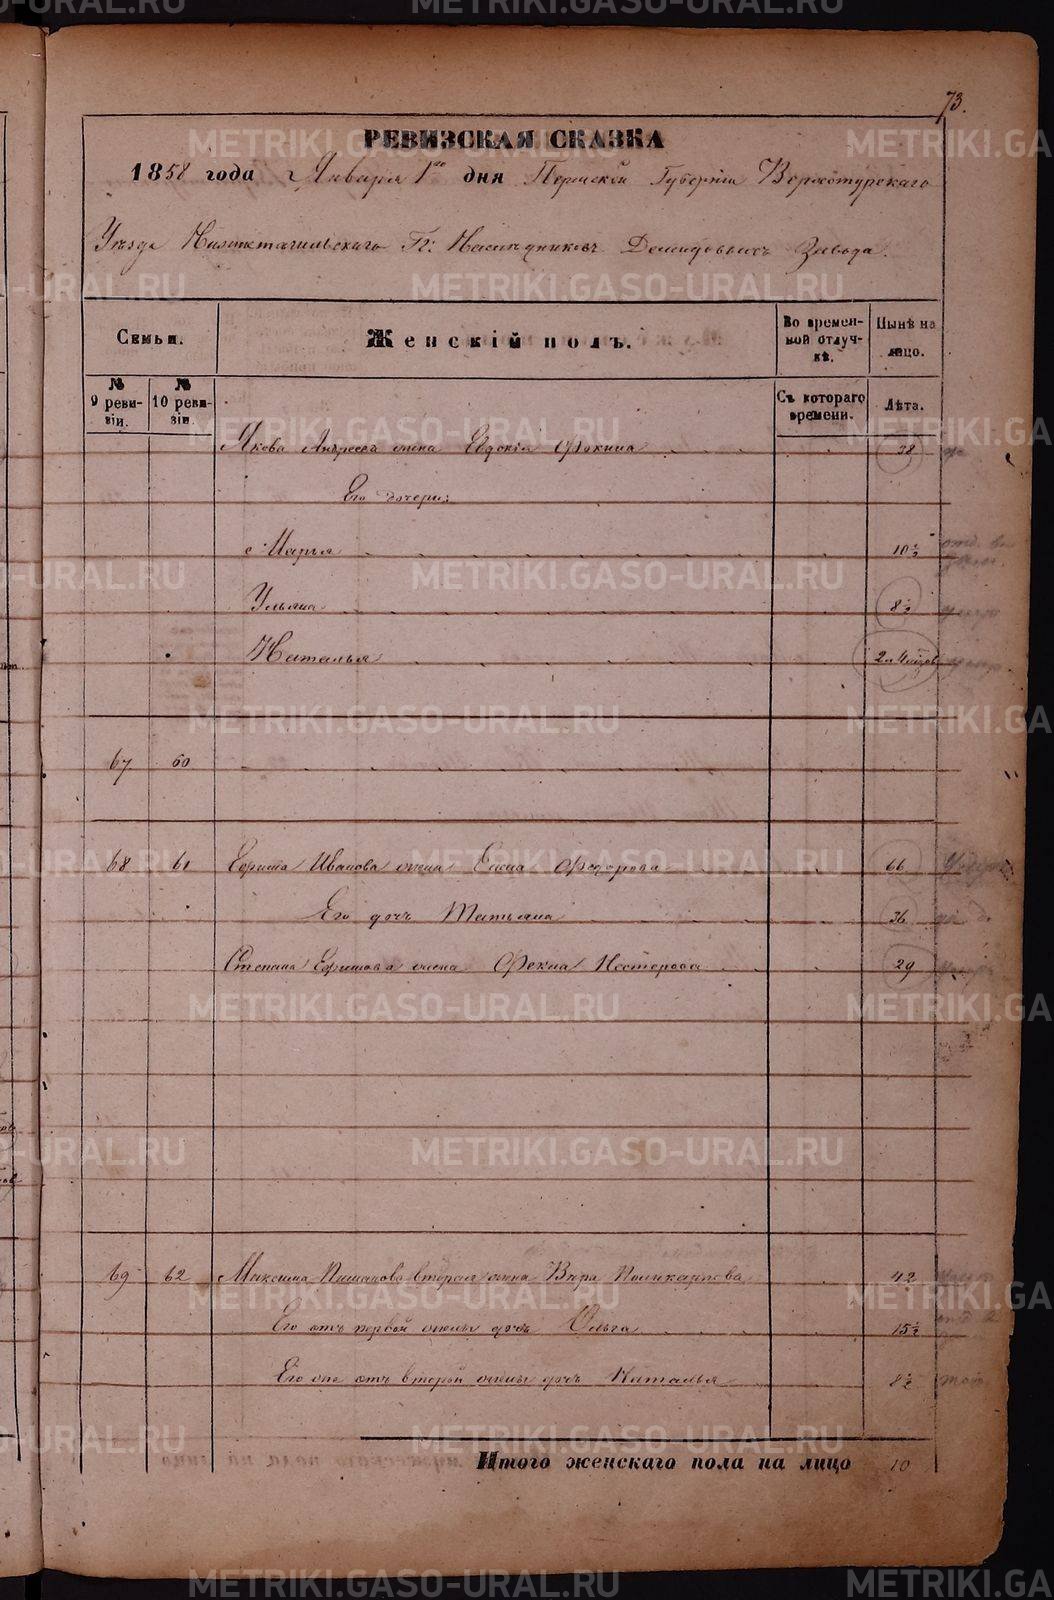 73.
РЕВИЗСКАЯ СКАЗКА
1858 года Января 1го дня Пермской Губерніи Верхотурскаго
Уезда Нижнетагильскаго Гг: Наследниковъ Демидовыхъ Завода.
Семьи.
Женскій полъ.
Во времен-
ной отлуч-
кѣ.
Нынѣ на
лицо.
№
9 реви-
зіи.
№
10 реви-
зіи.
Съ котораго
времени.
Лѣта.
Якова Андреева жена Евдокія Фокина 38
Его дочери:
Марья 10½
Ульяна 8½
Наталья 2 и 4 месяцов
67 60
68 61 Ефрема Иванова жена Елена Федорова 66
Его дочь Татьяна 36
Степана Ефремова жена Фекла Нестерова 29
69 62 Максима вторая жена Вера Поликарпова 42
Его отъ первой жены дочь Ольга 15½
Его же отъ второй жены дочь Наталья 8½
Итого женскаго пола на лицо 10
METRIKI.GASO-URAL.RU